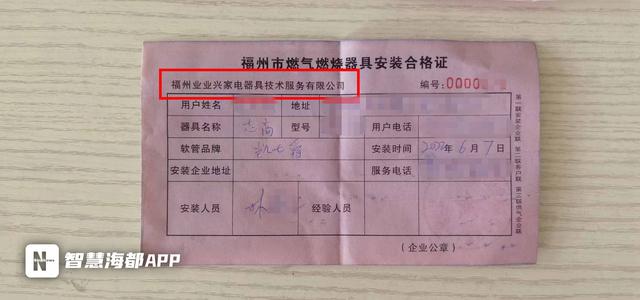 福州市燃气燃烧器具安装合格证
福州业业兴家电器具技术服务有限公司 编号:0000
用户姓名 地址
器具名称 志高 型号 用户电话
软管品牌 安装时间 2022年6月7日
安装企业地址 服务电话
安装人员 林 经验人员
(企业公章)
第一联安装企业联 第二联客户联 第三联供气企业联
N 智慧海都APP